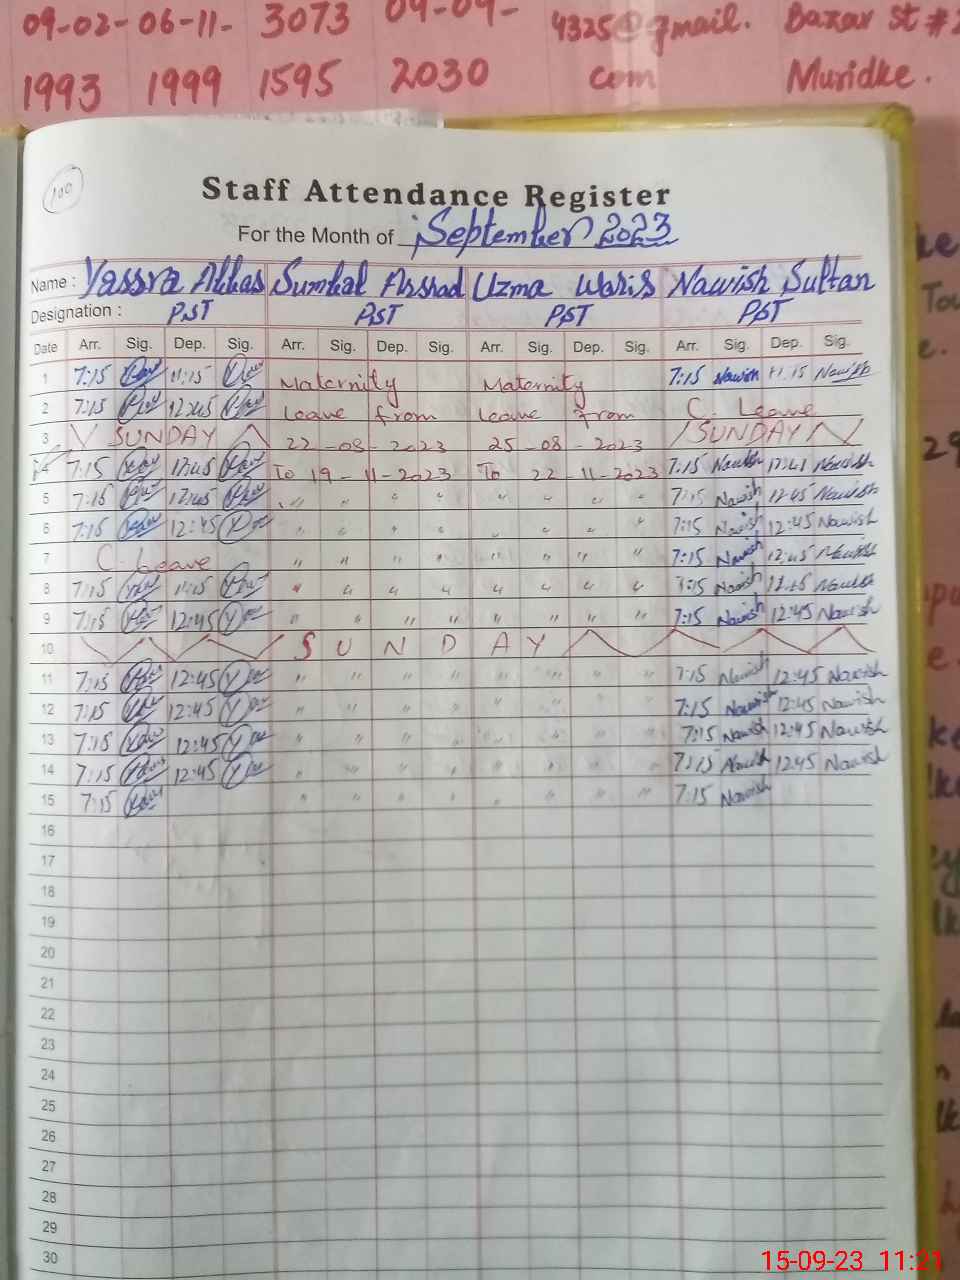 09-02- 06-11- 3073 09-04- 4325@gmail. Bazar St #
1993 1999 1595 2030 com Muridke.
100
Staff Attendance Register
For the Month of September 2023
Name : Yassra Abbas Sumbal Arshad Uzma Waris Nawish Sultan
Designation : PST PST PST PST
Date Arr. Sig. Dep. Sig. Arr. Sig. Dep. Sig. Arr. Sig. Dep. Sig. Arr. Sig. Dep. Sig.
1 7:15 11:15 Maternity Maternity 7:15 Nawish 11:15 Nawish
2 7:15 12:45 Leave from Leave from C. Leave
3 SUNDAY 22-08-2023 25-08-2023 SUNDAY
4 7:15 12:45 To 19-11-2023 To 22-11-2023 7:15 Nawish Nawish
5 7:15 12:45 " " " " " " " " 7:15 Nawish 12:45 Nawish
6 7:15 12:45 " " " " " " " " 7:15 Nawish 12:45 Nawish
7 C. Leave " " " " " " " " 7:15 Nawish 12:45 Nawish
8 7:15 11:15 " " " " " " " " 7:15 Nawish Nawish
9 7:15 12:45 " " " " " " " " 7:15 Nawish 12:45 Nawish
10 SUNDAY
11 7:15 12:45 " " " " " " " " 7:15 Nawish 12:45 Nawish
12 7:15 12:45 " " " " " " " " 7:15 Nawish 12:45 Nawish
13 7:15 12:45 " " " " " " " " 7:15 Nawish 12:45 Nawish
14 7:15 12:45 " " " " " " " " 7:15 Nawish 12:45 Nawish
15 7:15 " " " " " " " " 7:15 Nawish
16
17
18
19
20
21
22
23
24
25
26
27
28
29
30
15-09-23 11:21